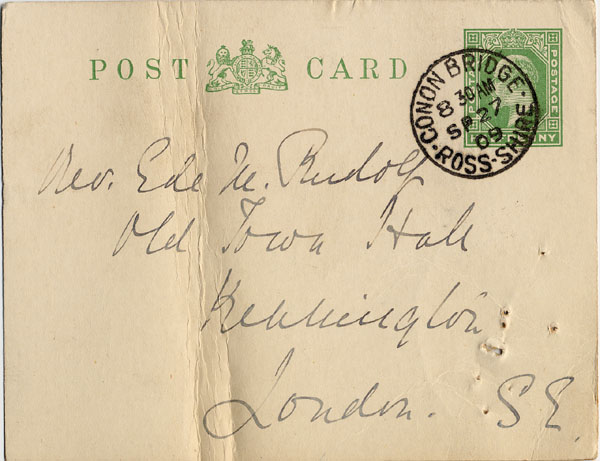 POST CARD
POSTAGE
CONON BRIDGE
8 30 AM
SP 27
09
ROSS-SHIRE
Rev. Ede M. Rudolf
Old Town Hall
Kennington
London. S E.